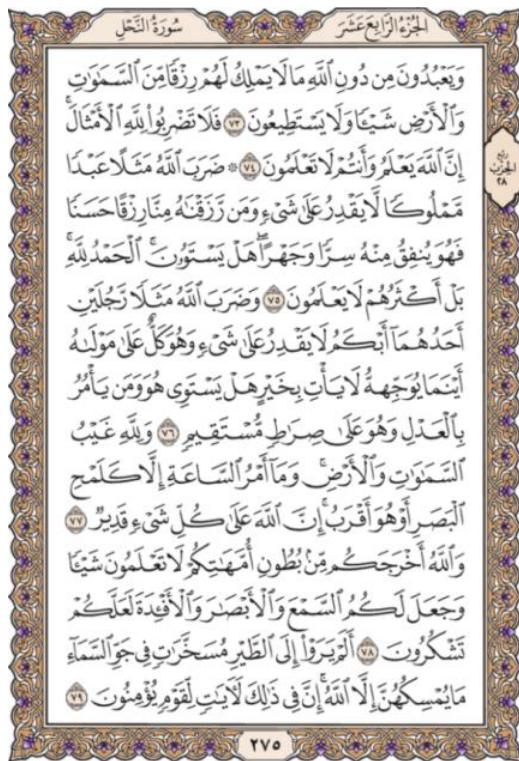 الجزء الرابع عشر
سورة النحل
وَيَعْبُدُونَ مِن دُونِ ٱللَّهِ مَا لَا يَمْلِكُ لَهُمْ رِزْقًا مِّنَ ٱلسَّمَٰوَٰتِ
وَٱلْأَرْضِ شَيْـًٔا وَلَا يَسْتَطِيعُونَ ٧٣ فَلَا تَضْرِبُوا۟ لِلَّهِ ٱلْأَمْثَالَ ۚ
إِنَّ ٱللَّهَ يَعْلَمُ وَأَنتُمْ لَا تَعْلَمُونَ ٧٤ ۞ ضَرَبَ ٱللَّهُ مَثَلًا عَبْدًا
مَّمْلُوكًا لَّا يَقْدِرُ عَلَىٰ شَىْءٍ وَمَن رَّزَقْنَٰهُ مِنَّا رِزْقًا حَسَنًا
فَهُوَ يُنفِقُ مِنْهُ سِرًّا وَجَهْرًا ۖ هَلْ يَسْتَوُۥنَ ۚ ٱلْحَمْدُ لِلَّهِ ۚ
بَلْ أَكْثَرُهُمْ لَا يَعْلَمُونَ ٧٥ وَضَرَبَ ٱللَّهُ مَثَلًا رَّجُلَيْنِ
أَحَدُهُمَآ أَبْكَمُ لَا يَقْدِرُ عَلَىٰ شَىْءٍ وَهُوَ كَلٌّ عَلَىٰ مَوْلَىٰهُ
أَيْنَمَا يُوَجِّههُّ لَا يَأْتِ بِخَيْرٍ ۖ هَلْ يَسْتَوِى هُوَ وَمَن يَأْمُرُ
بِٱلْعَدْلِ ۙ وَهُوَ عَلَىٰ صِرَٰطٍ مُّسْتَقِيمٍ ٧٦ وَلِلَّهِ غَيْبُ
ٱلسَّمَٰوَٰتِ وَٱلْأَرْضِ ۚ وَمَآ أَمْرُ ٱلسَّاعَةِ إِلَّا كَلَمْحِ
ٱلْبَصَرِ أَوْ هُوَ أَقْرَبُ ۚ إِنَّ ٱللَّهَ عَلَىٰ كُلِّ شَىْءٍ قَدِيرٌ ٧٧
وَٱللَّهُ أَخْرَجَكُم مِّنۢ بُطُونِ أُمَّهَٰتِكُمْ لَا تَعْلَمُونَ شَيْـًٔا
وَجَعَلَ لَكُمُ ٱلسَّمْعَ وَٱلْأَبْصَٰرَ وَٱلْأَفْـِٔدَةَ ۙ لَعَلَّكُمْ
تَشْكُرُونَ ٧٨ أَلَمْ يَرَوْا۟ إِلَى ٱلطَّيْرِ مُسَخَّرَٰتٍ فِى جَوِّ ٱلسَّمَآءِ
مَا يُمْسِكُهُنَّ إِلَّا ٱللَّهُ ۗ إِنَّ فِى ذَٰلِكَ لَءَايَٰتٍ لِّقَوْمٍ يُؤْمِنُونَ ٧٩
ربع
الحزب
٢٨
٢٧٥